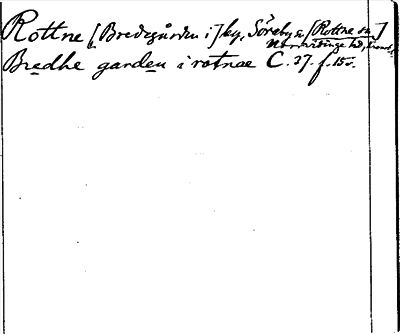 Rottne [Bredegården i] by, Söreby sn [Rottne sn]
Norrvidinge hd,
Bredhe garden i rotnae C. 37. f. 15 v.